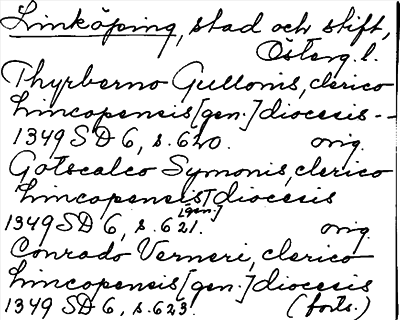 Linköping, stad och stift,
Österg. l.
Thyrberno Gullonis, clerico
Lincopensis [gen.] diocesis --
1349 SD 6, s. 620. orig.
Gotscalco Symonis, clerico
Lincopensis [gen.] diocesis
1349 SD 6, s. 621. orig.
Conrado Verneri, clerico
Lincopensis [gen.] diocesis
1349 SD 6, s. 623. (forts.)